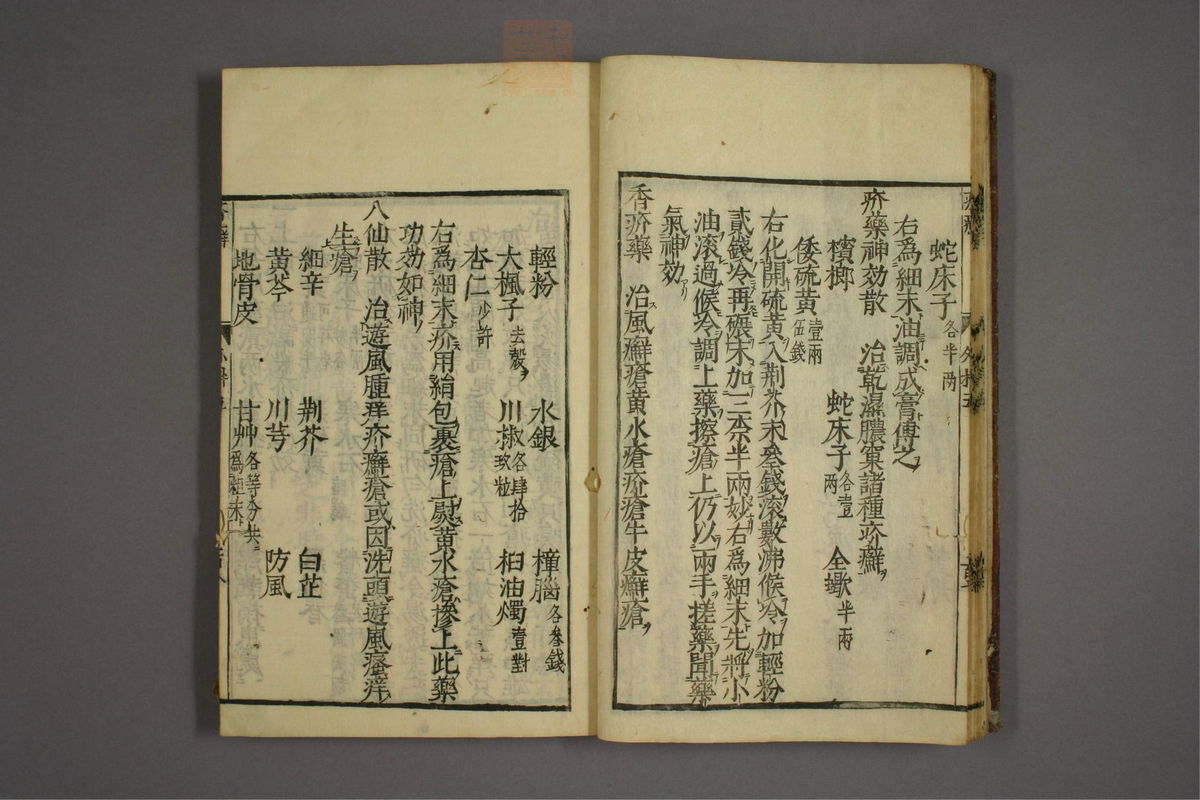 蛇床子各半兩
右爲細末油調成膏傅之
疥藥神効散　治乾濕膿窠諸種疥癬
檳榔　蛇床子各壹兩　全蝎半兩
倭硫黄壹兩伍錢
右化開硫黄入荆芥末叄錢滚數沸候冷加輕粉
貳錢冷再碾末加三柰半兩妙右爲細末先將小
油滚過候冷調上藥擦瘡上仍以兩手搓藥聞藥
氣神効
香疥藥　治風癬瘡黄水瘡疥瘡牛皮癬瘡
輕粉　水銀　樟腦各叄錢
大楓子去殻　川椒各肆拾玖粒　桕油燭壹對
杏仁少許
右爲細末疥用絹包裹瘡上熨黄水瘡摻上此藥
功効如神
八仙散　治遊風腫痒疥癬瘡或因洗頭遊風瘙痒
生瘡
細辛　荆芥　白芷
黄芩　川芎　防風
地骨皮　甘艸各等分共爲麄末